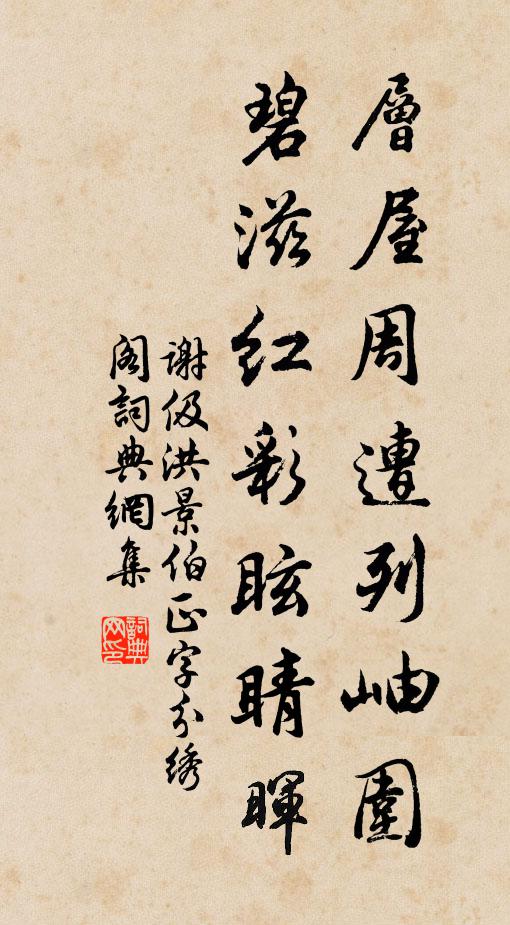 層屋周遭列岫圍
碧滋紅彩眩晴暉
謝伋洪景伯正字分绣
阁詞典網集
詞典網印